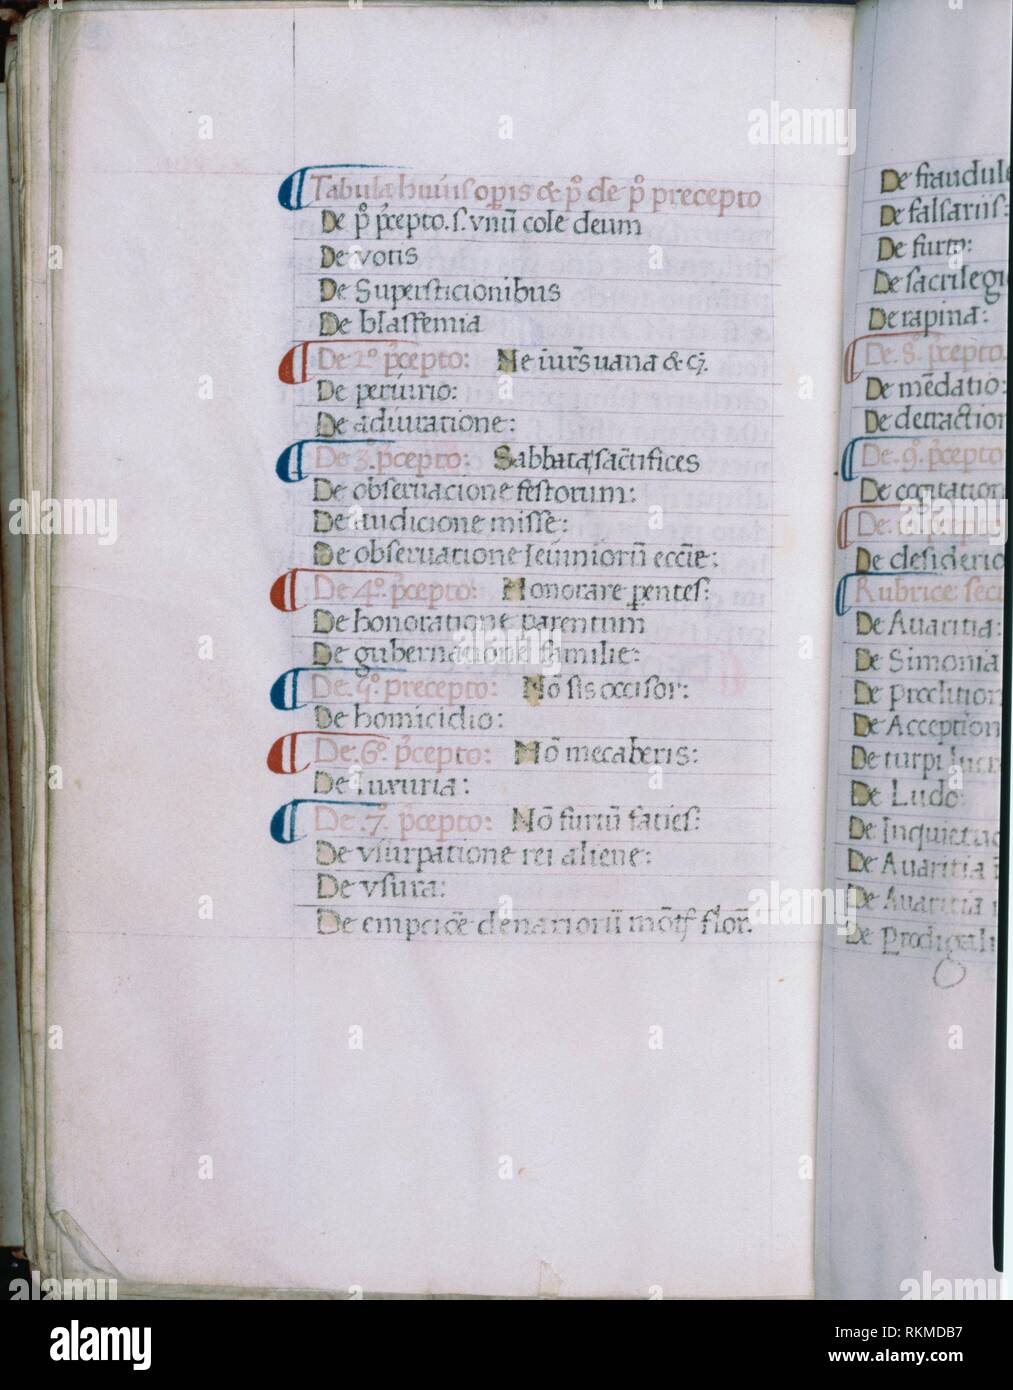 Tabula huius opis & pº de pº precepto
De pº pcepto. s. vnũ cole deum
De votis
De Supersticionibus
De blasfemia
De 2º pcepto: Ne iurs uana & c̃.
De periurio:
De adiuratione:
De 3º. pcepto: Sabbata sãctifices
De obseruacione festorum:
De audicione misse:
De obseruatione ieiuniorũ eccĩe:
De 4º. pcepto: Honorare pentes:
De honoratione parentum
De gubernacione familie:
De. 5º. precepto: Nõ sis occisor:
De homicidio:
De. 6º. pcepto: Nõ mecaberis:
De luxuria:
De .7º. pcepto: Nõ furtũ facies:
De vsurpatione rei aliene:
De vsura:
De empciõe denariorũ mõt flor̃.
De fraudule
De falsariis:
De furto:
De sacrilegi
De rapina:
De. 8º. pcepto.
De mẽdatio:
De detraction
De. 9º. pcepto
De cogitation
De. 10. pcepto
De desiderio
Rubrice sec
De Auaritia:
De Simonia
De prodition
De Acception
De turpi lucr
De Ludo
De Inquietud
De Auaritia
De Auaritia
De Prodigali
alamy
Image ID: RKMDB7
www.alamy.com